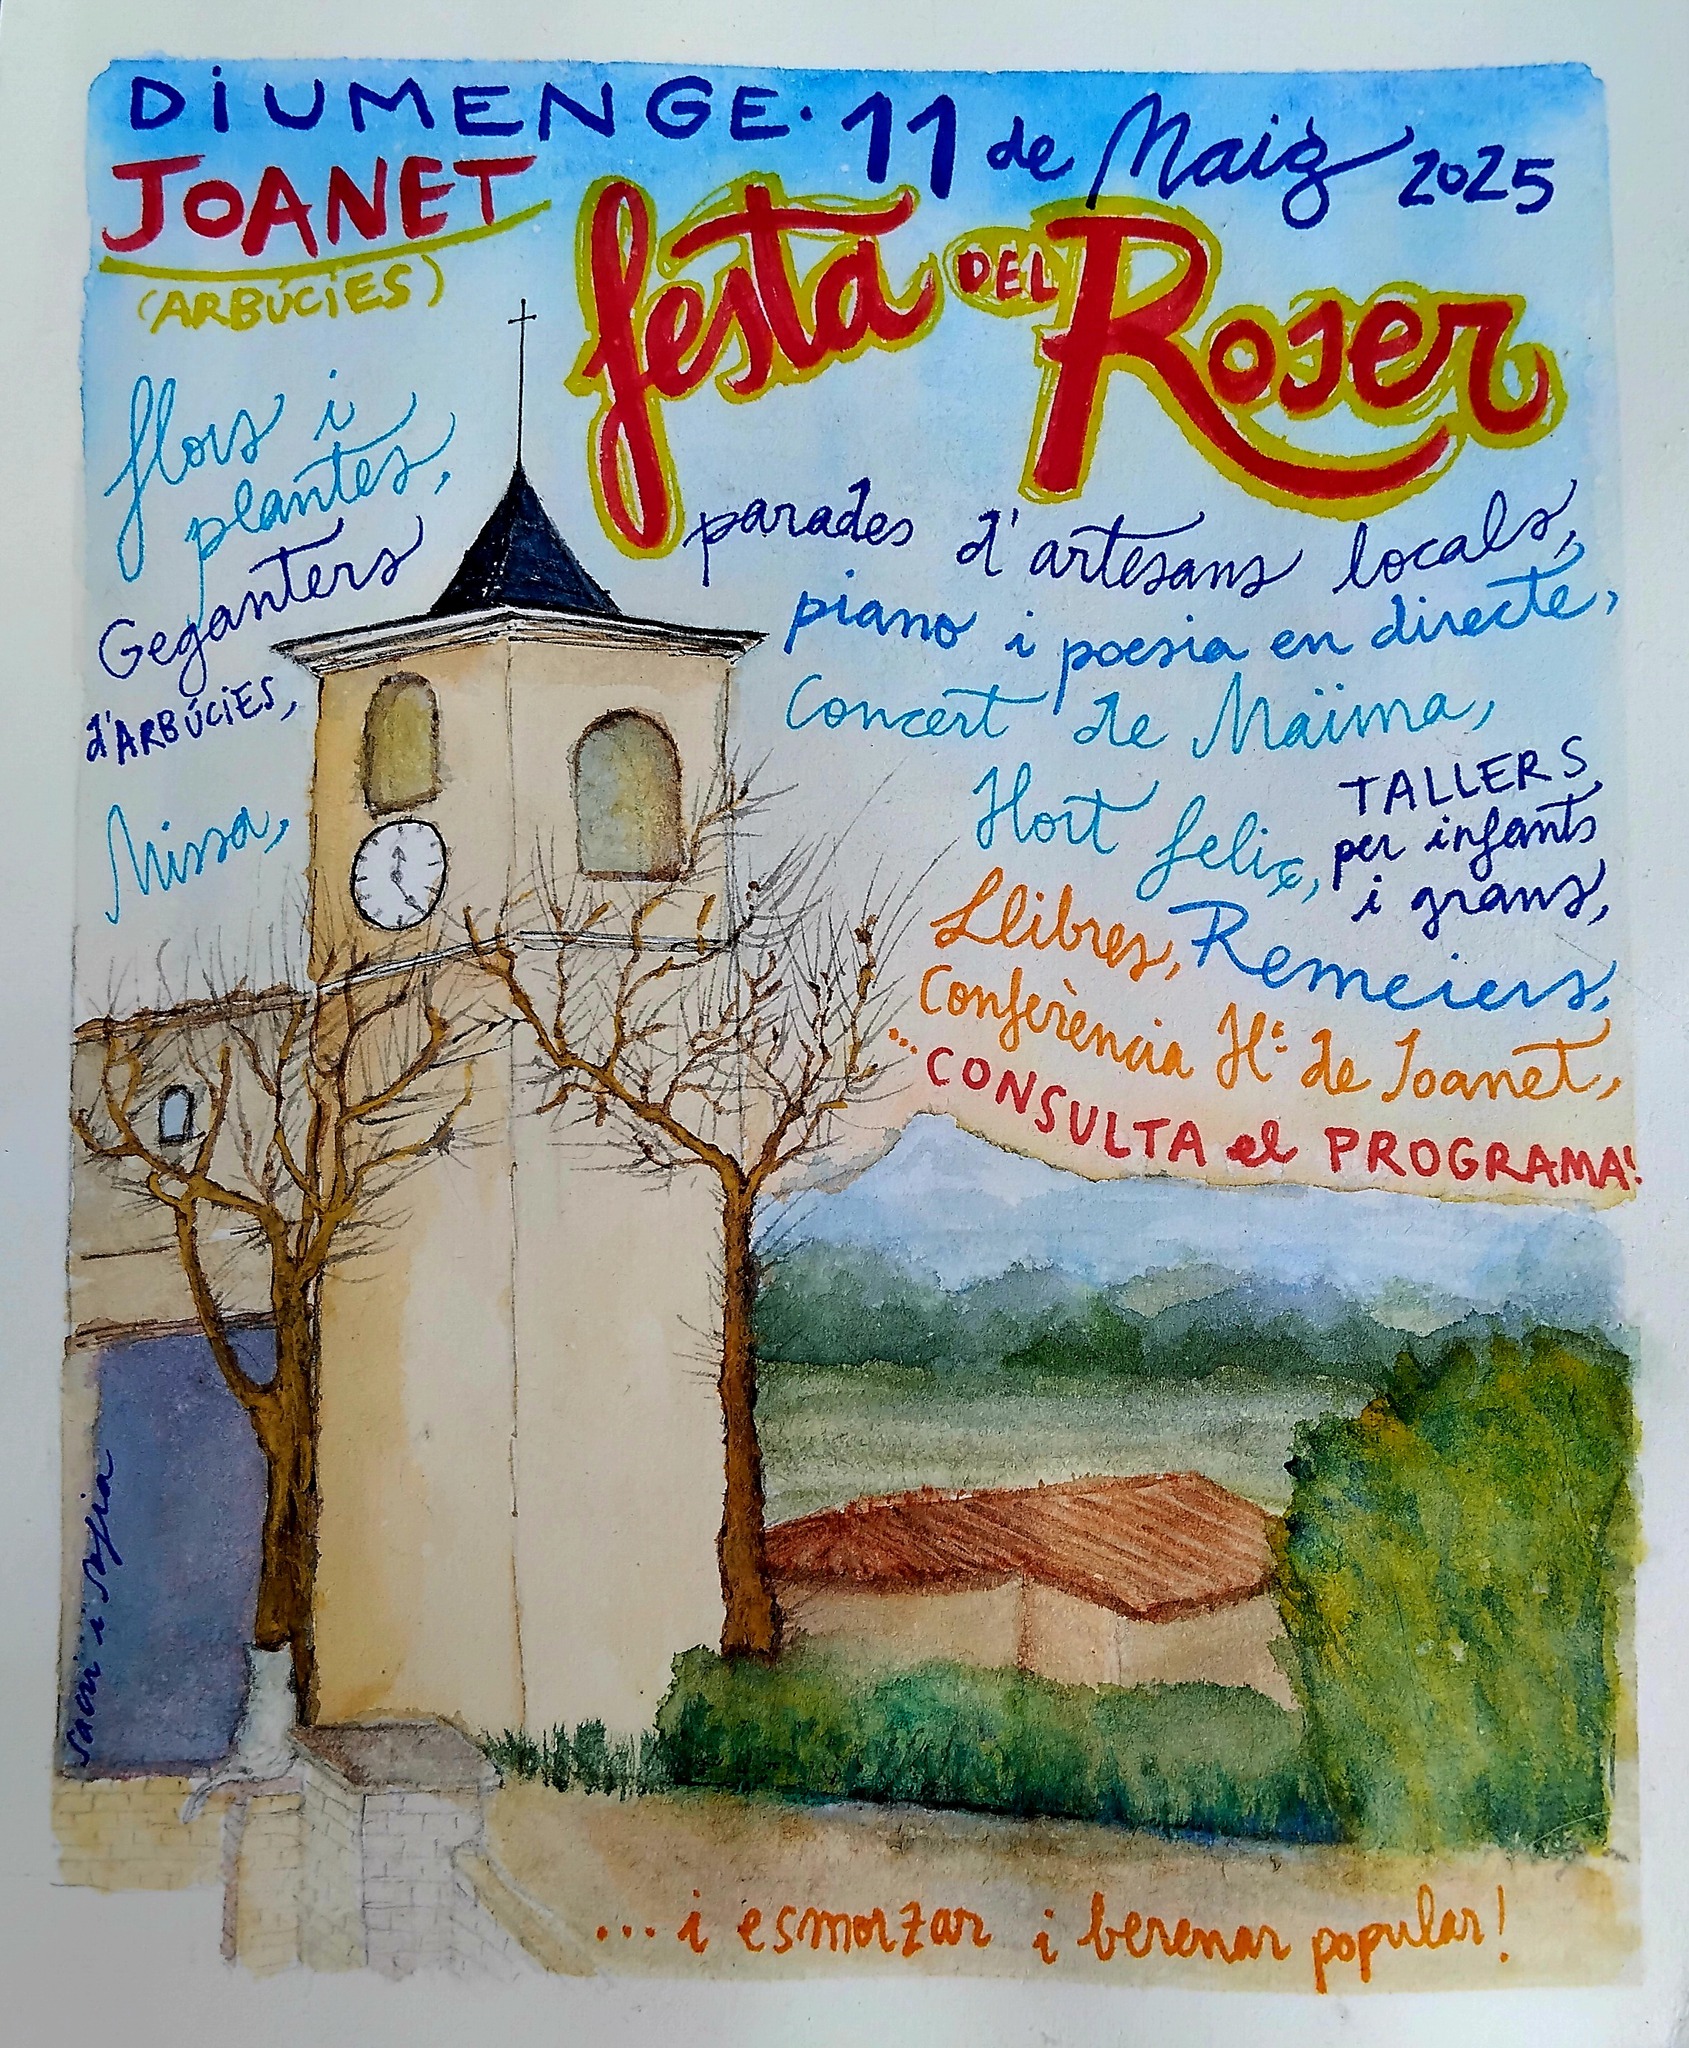 DIUMENGE · 11 de Maig 2025
JOANET
(ARBÚCIES)
festa DEL Roser
flors i
plantes,
Geganters
d'ARBÚCIES,
Missa,
parades d'artesans locals,
piano i poesia en directe,
Concert de Maïma,
Hort feliç,
TALLERS
per infants
i grans,
Llibres, Remeiers,
Conferència Hª de Joanet,
... CONSULTA el PROGRAMA!
... i esmorzar i berenar popular!
i sofia